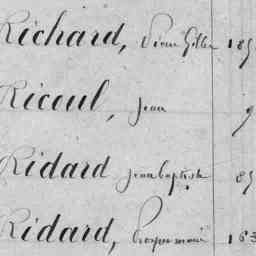 Richard, Pierre Gilles 189
Ricoul, Jean 9
Ridard Jean baptiste 89
Ridard, Prosper marie 163